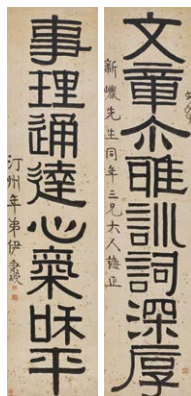 文章尒雅訓詞深厚
先生同年三兄大人誨正
事理通達心氣和平
汀州年弟伊秉綬